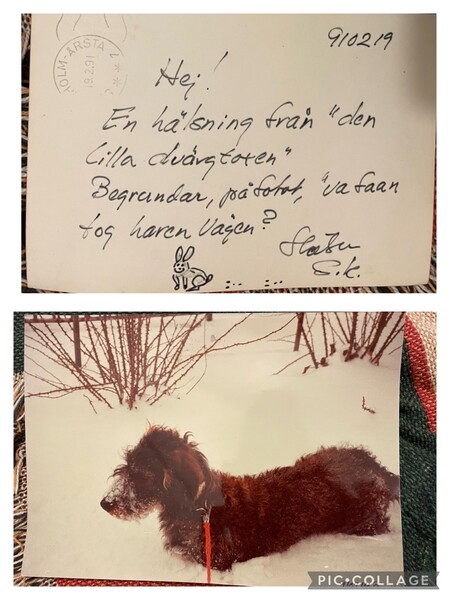 910219
OLM-ÅRSTA
19.2.91
Hej!
En hälsning från "den
lilla dvärgtaxen"
Begrundar, på fotot, "va faan
tog haren vägen?
PIC•COLLAGE